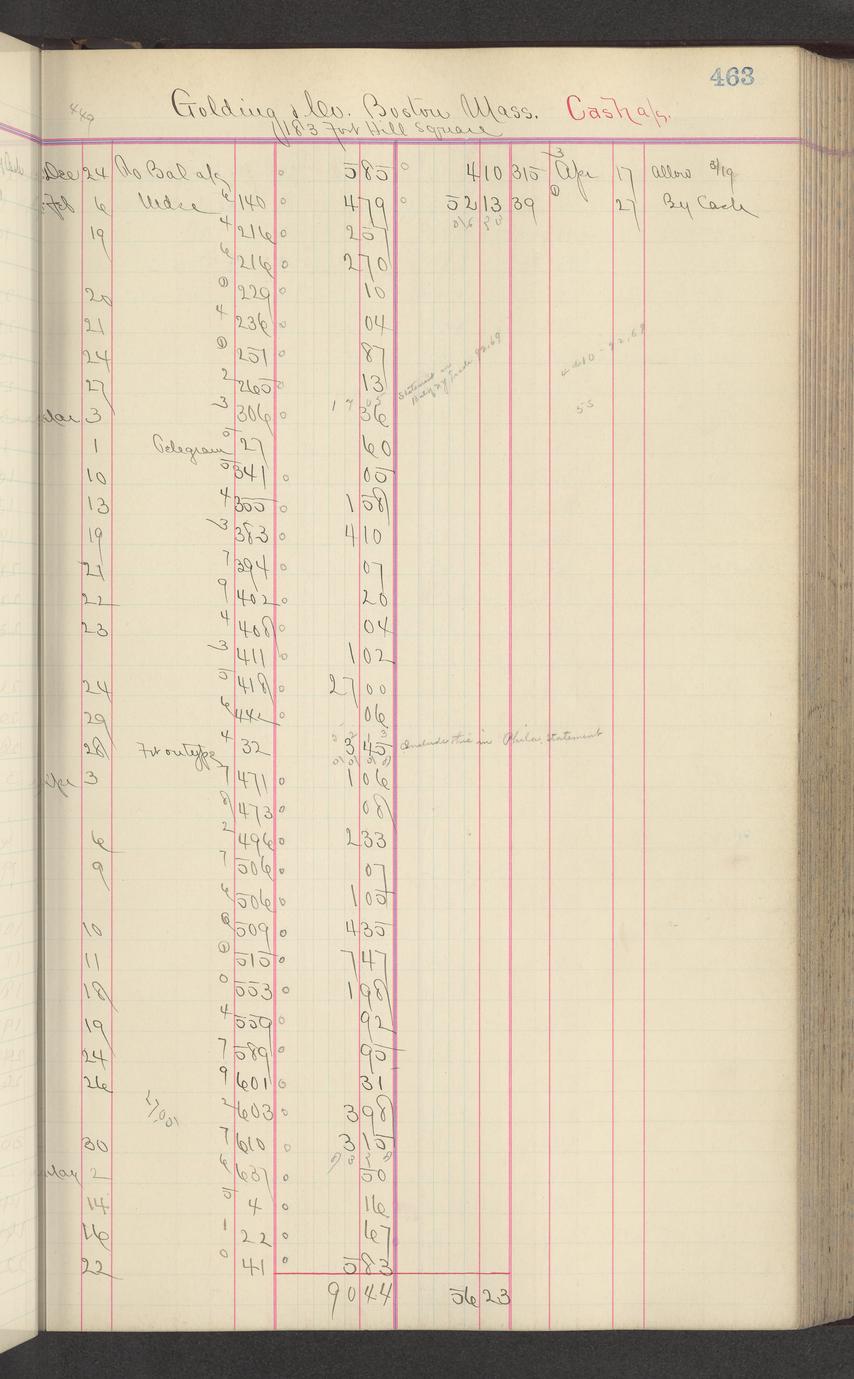 463
449 Golding & Co. Boston Mass. Cash a/c.
183 Fort Hill Square
Dec 24 To Bal a/c 5 85 4 10 315 3 Apr 17 allow 3/19
Feb 6 Mdse 6 140 4 79 52 13 39 27 By Cash
19 4 216 2 57
6 216 2 70
20 229 10
21 4 236 04
24 251 87
27 2 265 13
Mar 3 3 306 36
1 Telegram 0 27 60
10 5 341 05
13 4 355 1 58
19 3 383 4 10
21 7 394 07
22 9 402 20
23 4 408 04
3 411 1 02
24 5 418 27 00
29 6 442 06
28 Frt on type 4 32 3 45 Include this in Phila. Statement
Apr 3 7 471 1 06
8 473 08
6 2 496 2 33
9 7 506 07
6 506 1 05
10 509 4 35
11 515 7 47
18 0 553 1 98
19 4 559 92
24 7 589 95
26 9 601 31
2 603 3 98
30 7 610 3 15
May 2 6 637 50
14 5 4 16
16 1 22 67
22 0 41 5 83
90 44 56 23